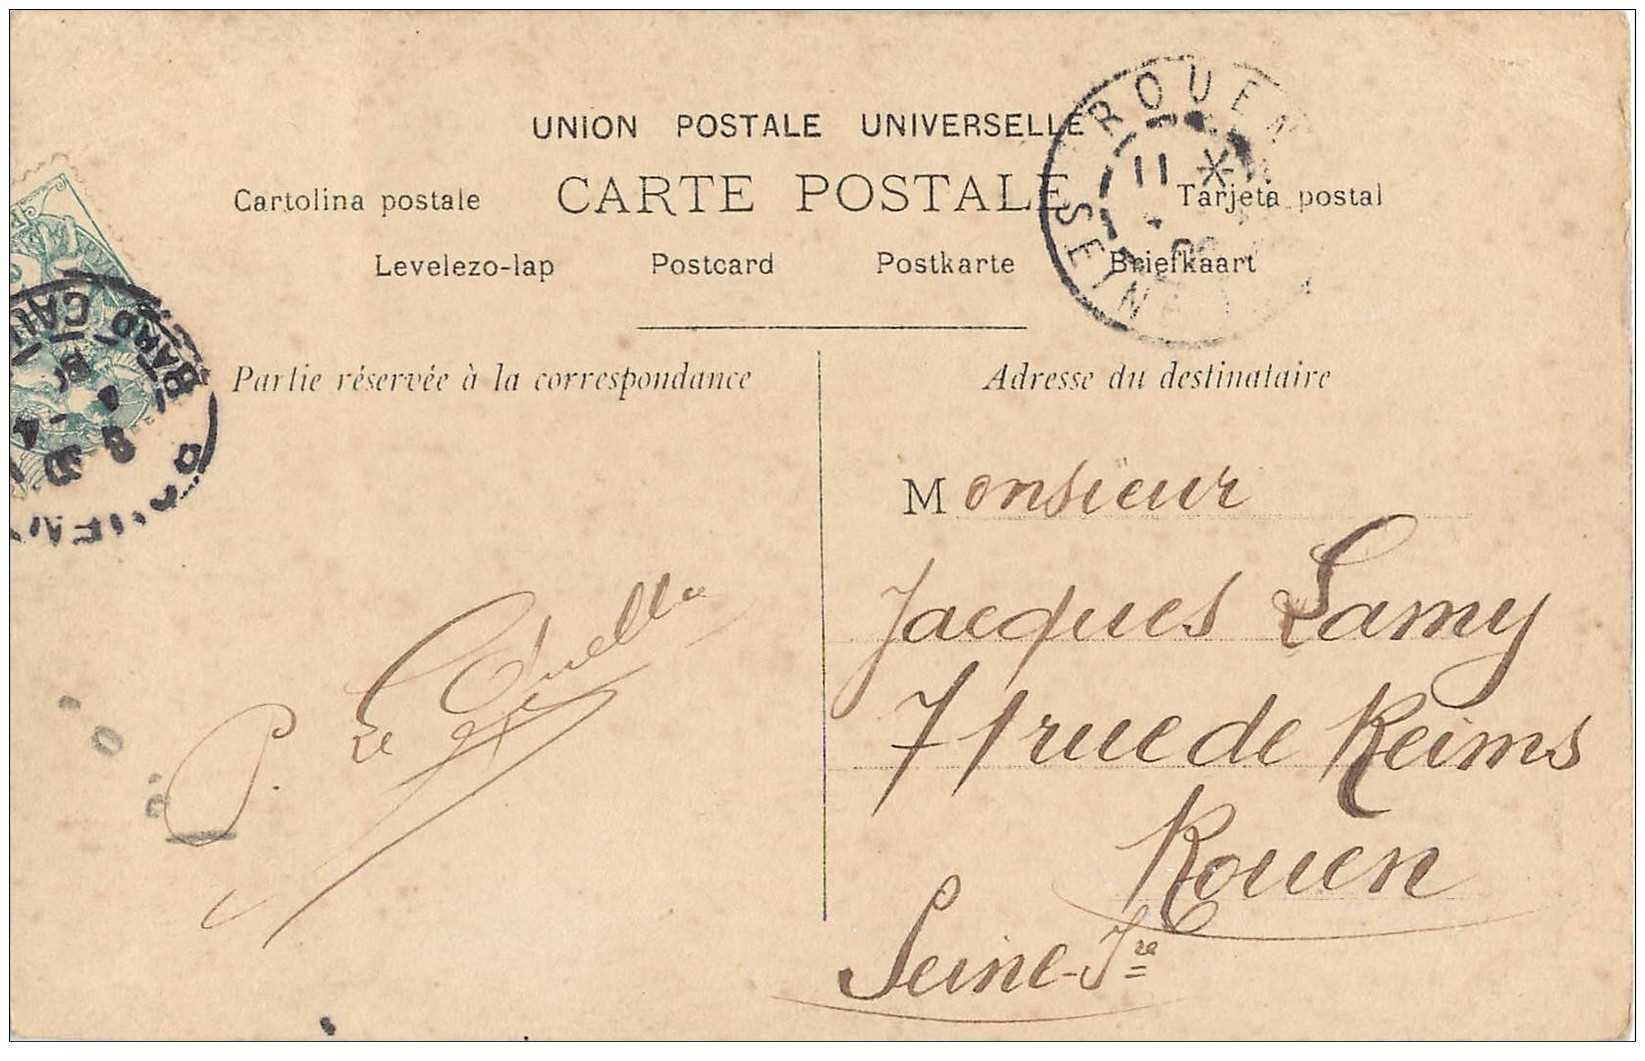 UNION POSTALE UNIVERSELLE
CARTE POSTALE
Cartolina postale Tarjeta postal
Levelezo-lap Postcard Postkarte Briefkaart
ROUEN
11
SEINE
Partie réservée à la correspondance
Adresse du destinataire
Monsieur
Jacques Lamy
71 rue de Reims
Rouen
Seine-Ire
P. Le